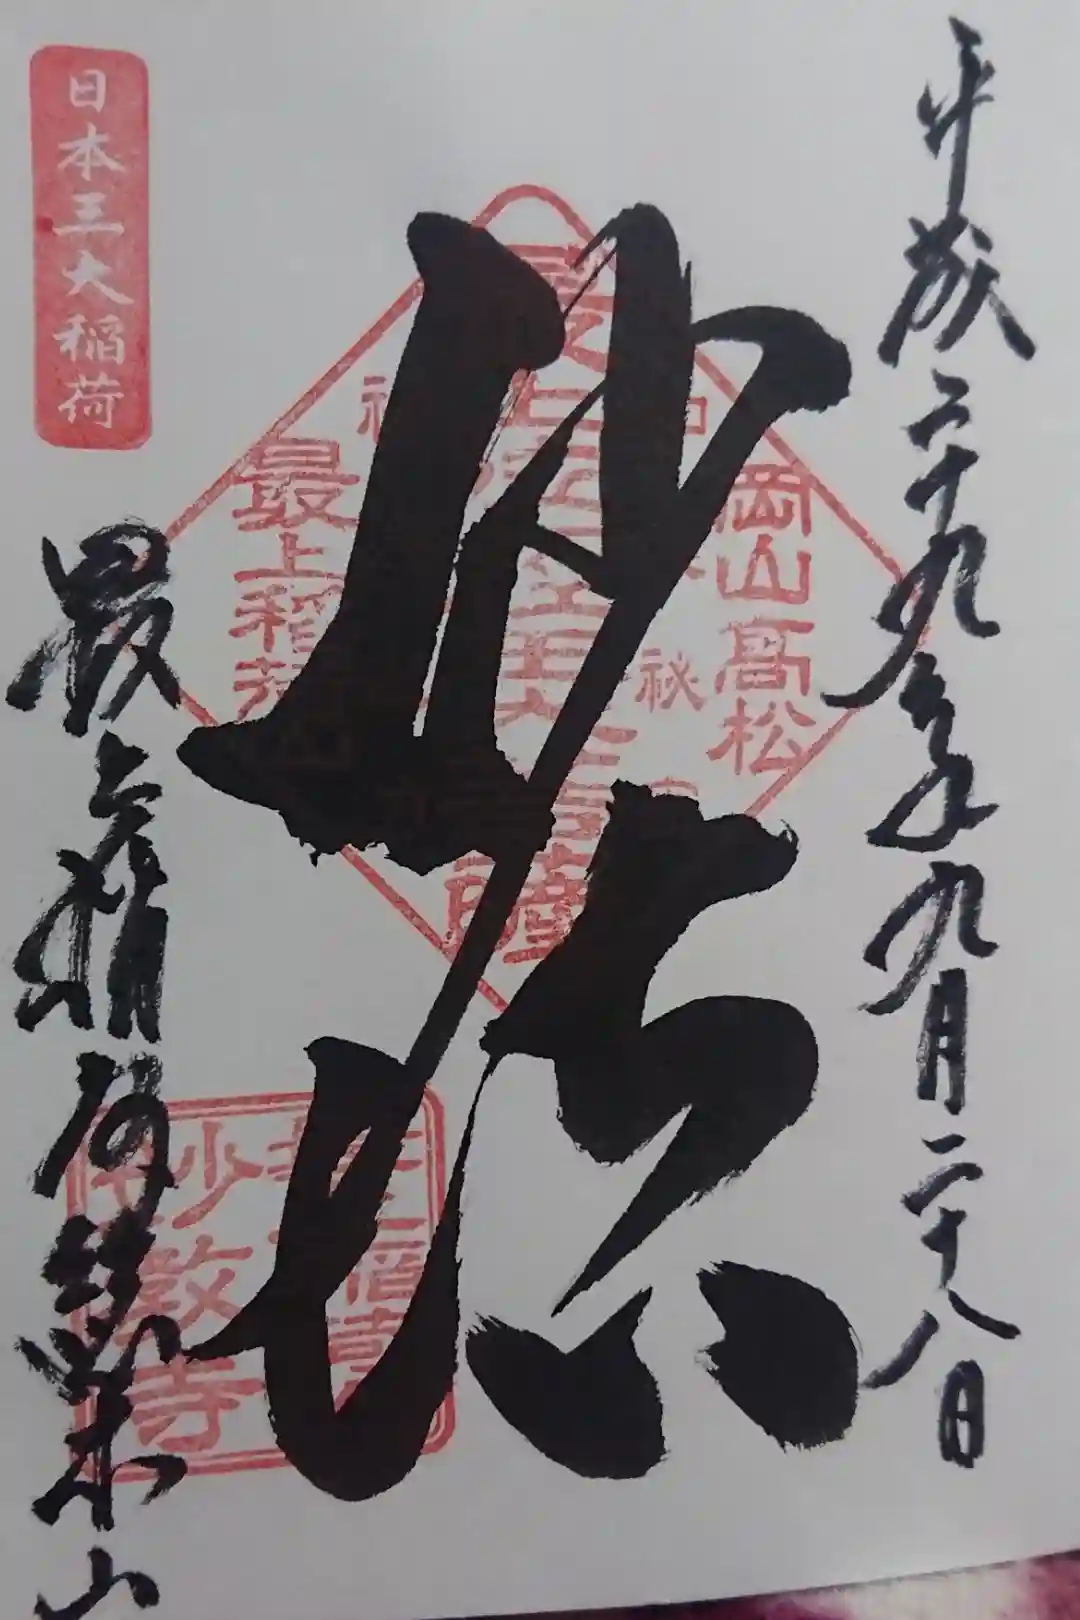 平成二十九年九月二十八日
妙法
岡山高松
最上稲荷山
日本三大稲荷
最上稲荷総本山
妙教寺